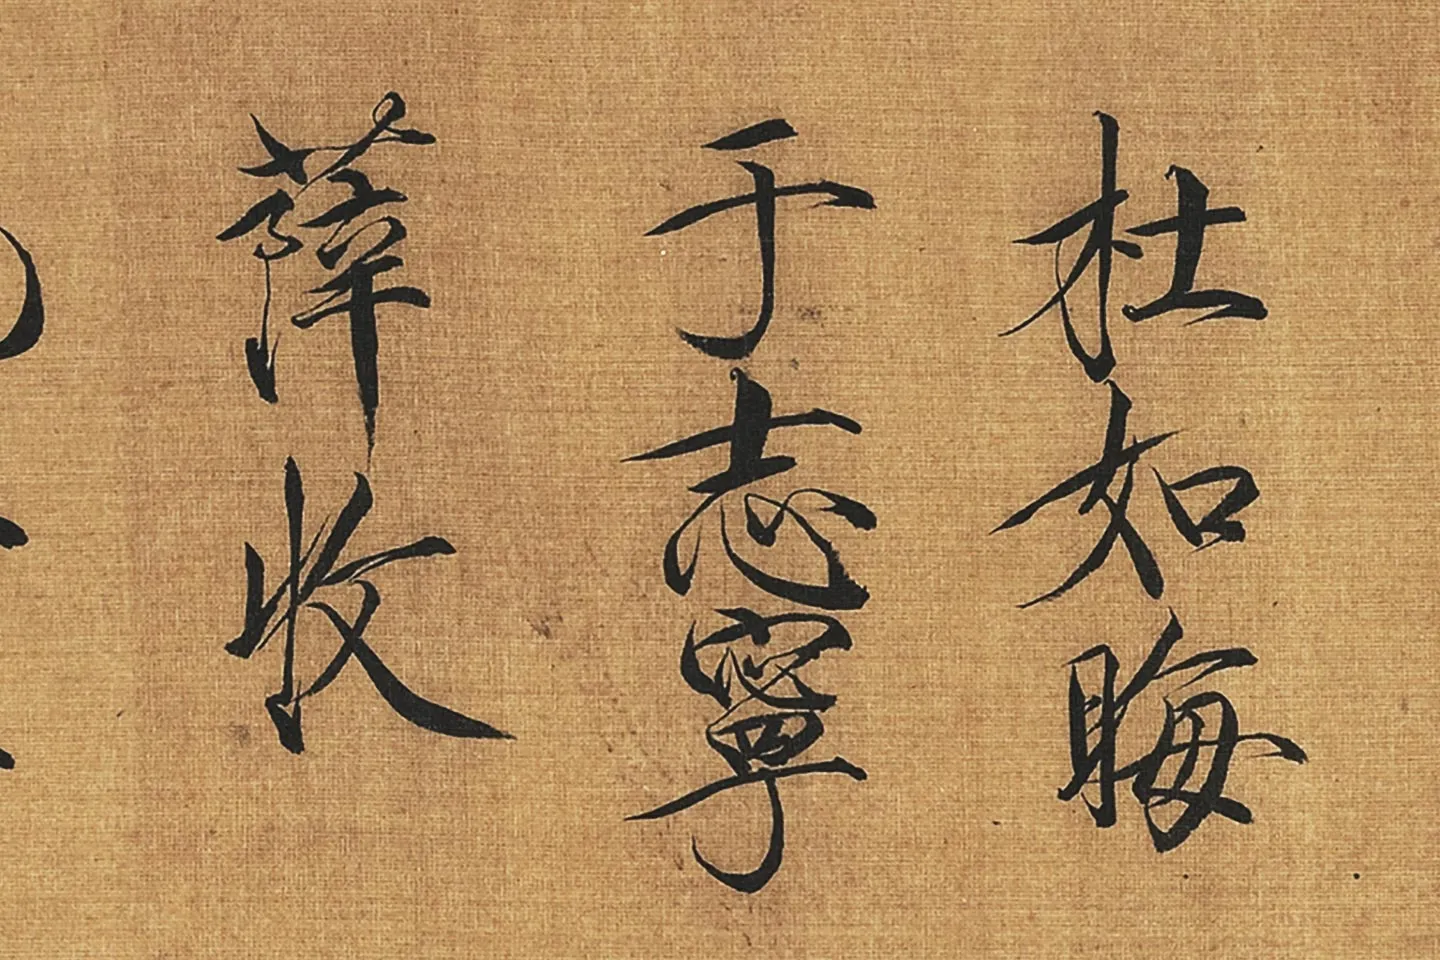 杜如晦
于志寧
薛收